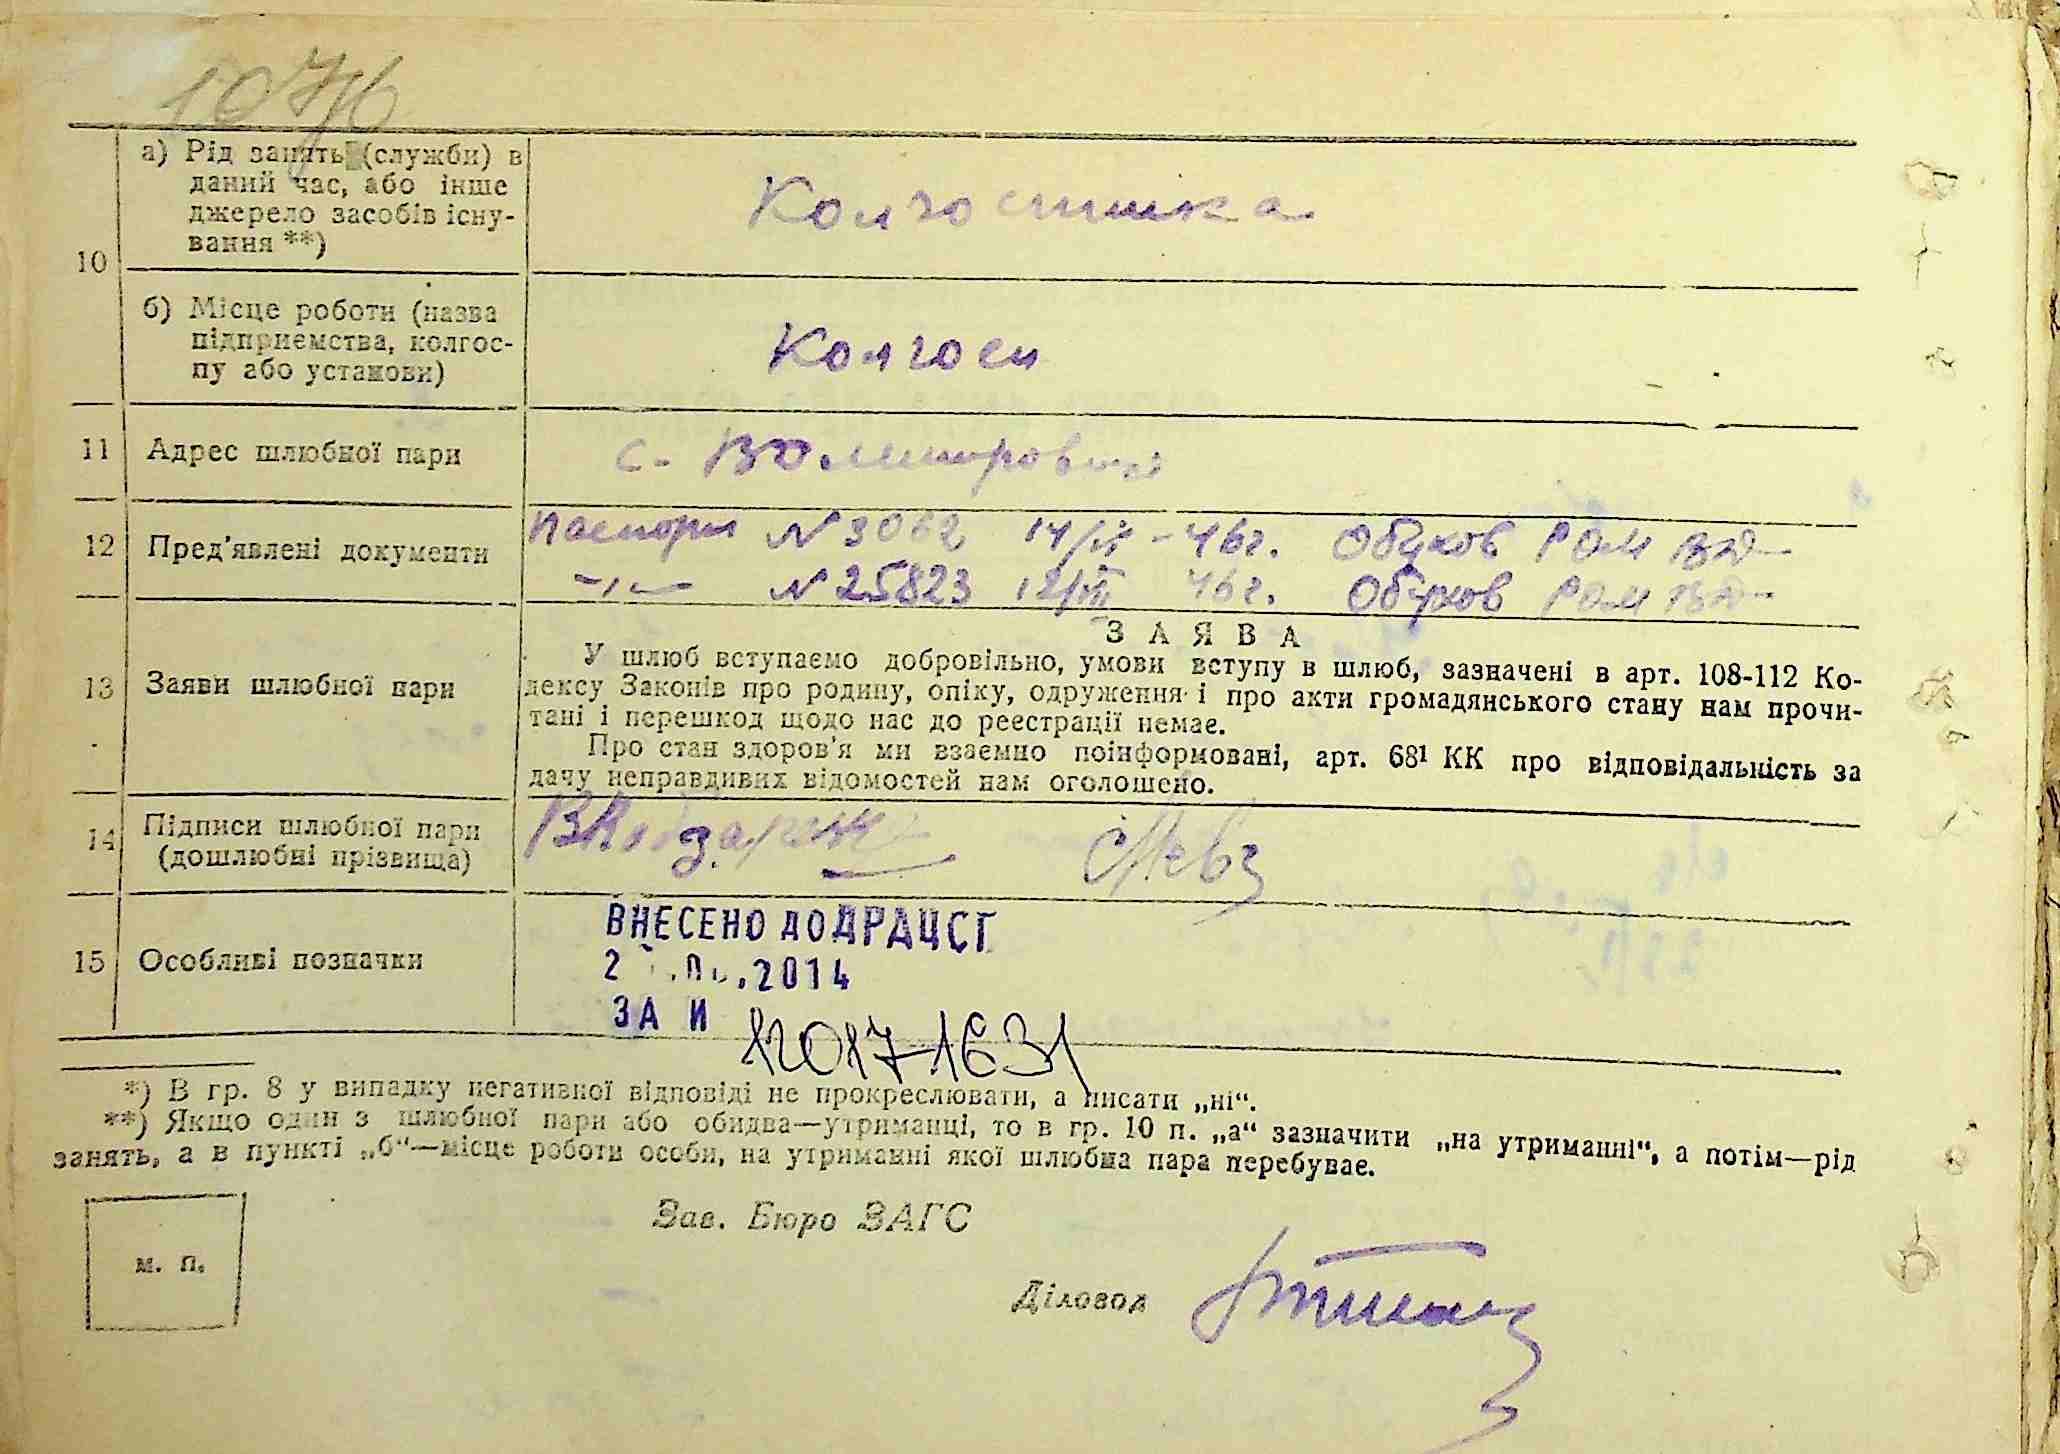 1076
10
а) Рід занять (служби) в
даний час, або інше
джерело засобів існу-
вання **)
Колгоспника
б) Місце роботи (назва
підприємства, колгос-
пу або установи)
Колгосп
11 Адрес шлюбної пари
с.
12 Пред'явлені документи
Паспорт N 3062 14/IX - 46г. Обухов РОМ ВД
N 25823 12/VII 46г. Обухов РОМ ВД
ЗАЯВА
13 Заяви шлюбної пари
У шлюб вступаємо добровільно, умови вступу в шлюб, зазначені в арт. 108-112 Ко-
дексу Законів про родину, опіку, одруження і про акти громадянського стану нам прочи-
тані і перешкод щодо нас до реєстрації немає.
Про стан здоров'я ми взаємно поінформовані, арт. 68¹ КК про відповідальність за
дачу неправдивих відомостей нам оголошено.
14 Підписи шлюбної пари
(дошлюбні прізвища)
15 Особливі позначки
ВНЕСЕНО ДО ДРАЦСГ
.2014
ЗА И 12017-1631
*) В гр. 8 у випадку негативної відповіді не прокреслювати, а писати „ні“.
**) Якщо один з шлюбної пари або обидва—утриманці, то в гр. 10 п. „а“ зазначити „на утриманні“, а потім—рід
занять, а в пункті „б“—місце роботи особи, на утриманні якої шлюбна пара перебуває.
Зав. Бюро ЗАГС
м. п.
Діловод